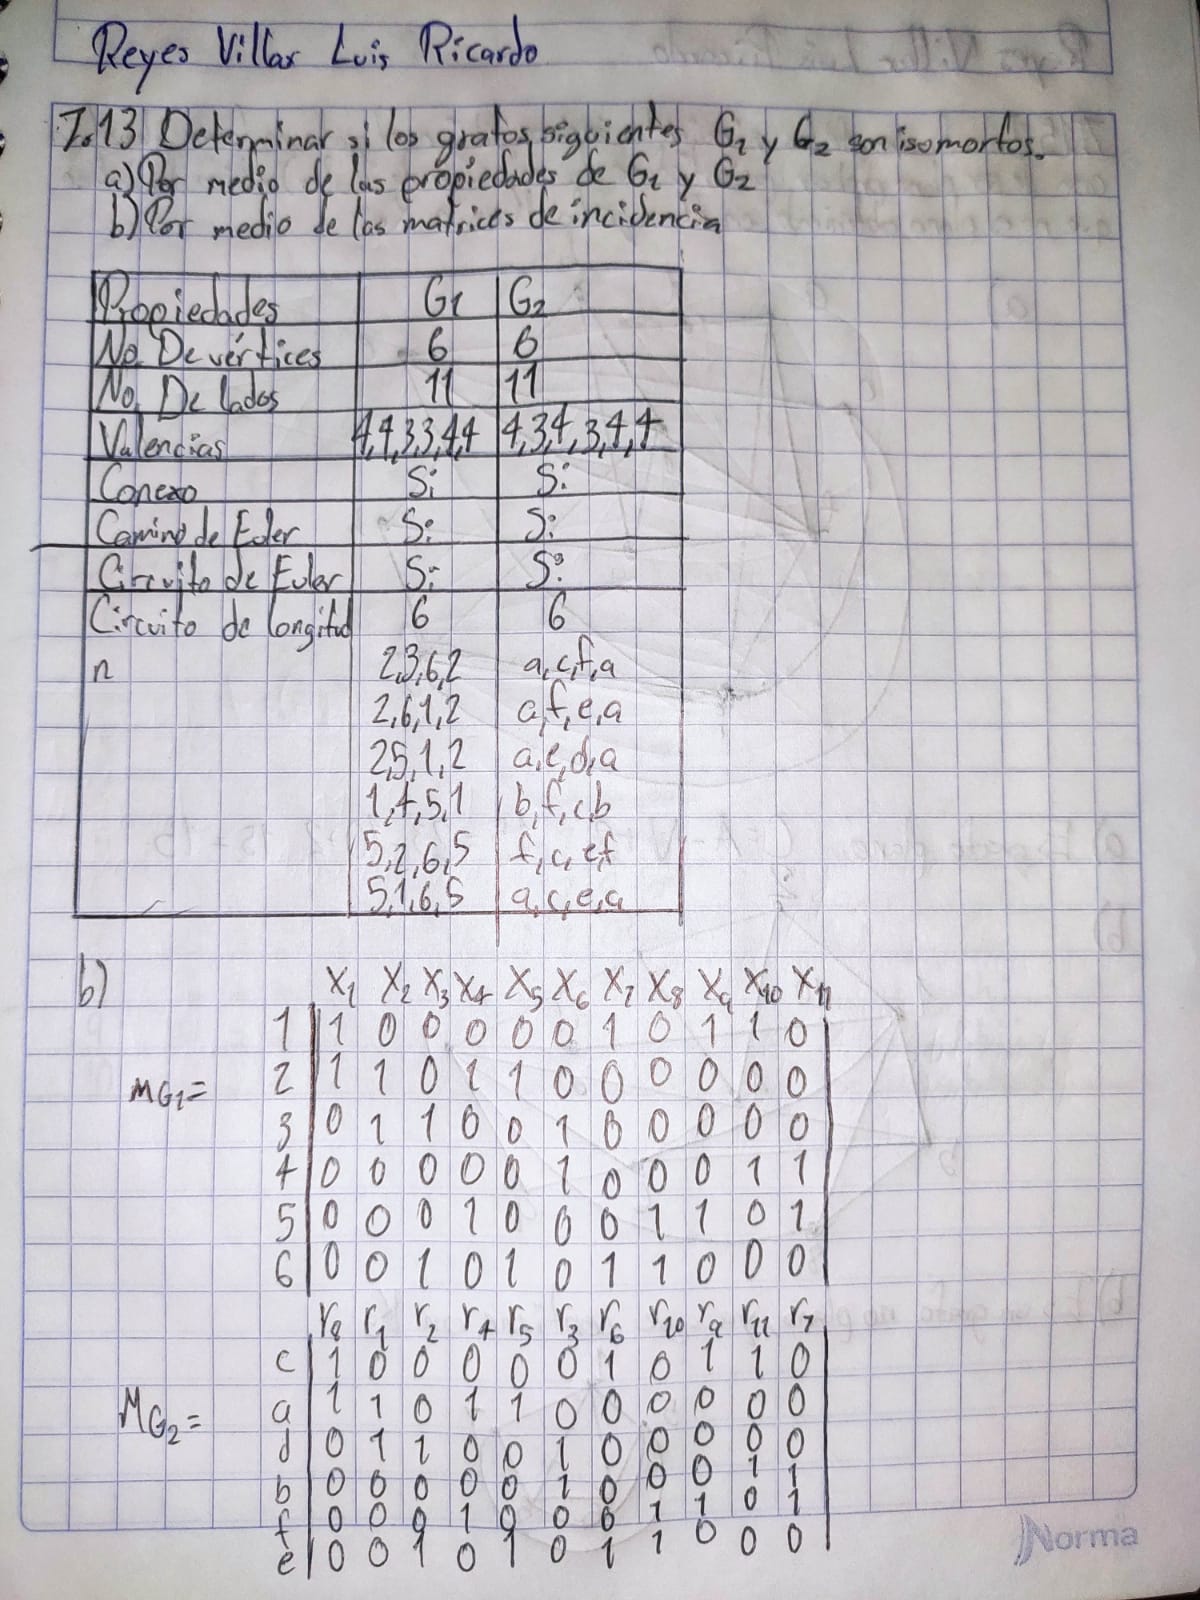 Reyes Villar Luis Ricardo
7.13 Determinar si los grafos siguientes G1 y G2 son isomorfos.
a) Por medio de las propiedades de G1 y G2
b) Por medio de las matrices de incidencia
Propiedades G1 G2
No. De vértices 6 6
No. De lados 11 11
Valencias 4,4,3,3,4,4 4,3,4,3,4,4
Conexo Si Si
Camino de Euler Si Si
Circuito de Euler Si Si
Circuito de longitud 6 6
n 2,3,6,2 a,c,f,a
2,6,1,2 a,f,e,a
2,5,1,2 a,e,d,a
1,4,5,1 b,f,c,b
5,2,6,5 f,c,e,f
5,1,6,5 a,c,e,a
b) X1 X2 X3 X4 X5 X6 X7 X8 X9 X10 X11
1 1 0 0 0 0 0 1 0 1 1 0
MG1= 2 1 1 0 1 1 0 0 0 0 0 0
3 0 1 1 0 0 1 0 0 0 0 0
4 0 0 0 0 0 1 0 0 0 1 1
5 0 0 0 1 0 0 0 1 1 0 1
6 0 0 1 0 1 0 1 1 0 0 0
r8 r1 r2 r4 r5 r3 r6 r10 r9 r11 r7
c 1 0 0 0 0 0 1 0 1 1 0
MG2= a 1 1 0 1 1 0 0 0 0 0 0
d 0 1 1 0 0 1 0 0 0 0 0
b 0 0 0 0 0 1 0 0 0 1 1
f 0 0 0 1 0 0 0 1 1 0 1
e 0 0 1 0 1 0 1 1 0 0 0
Norma